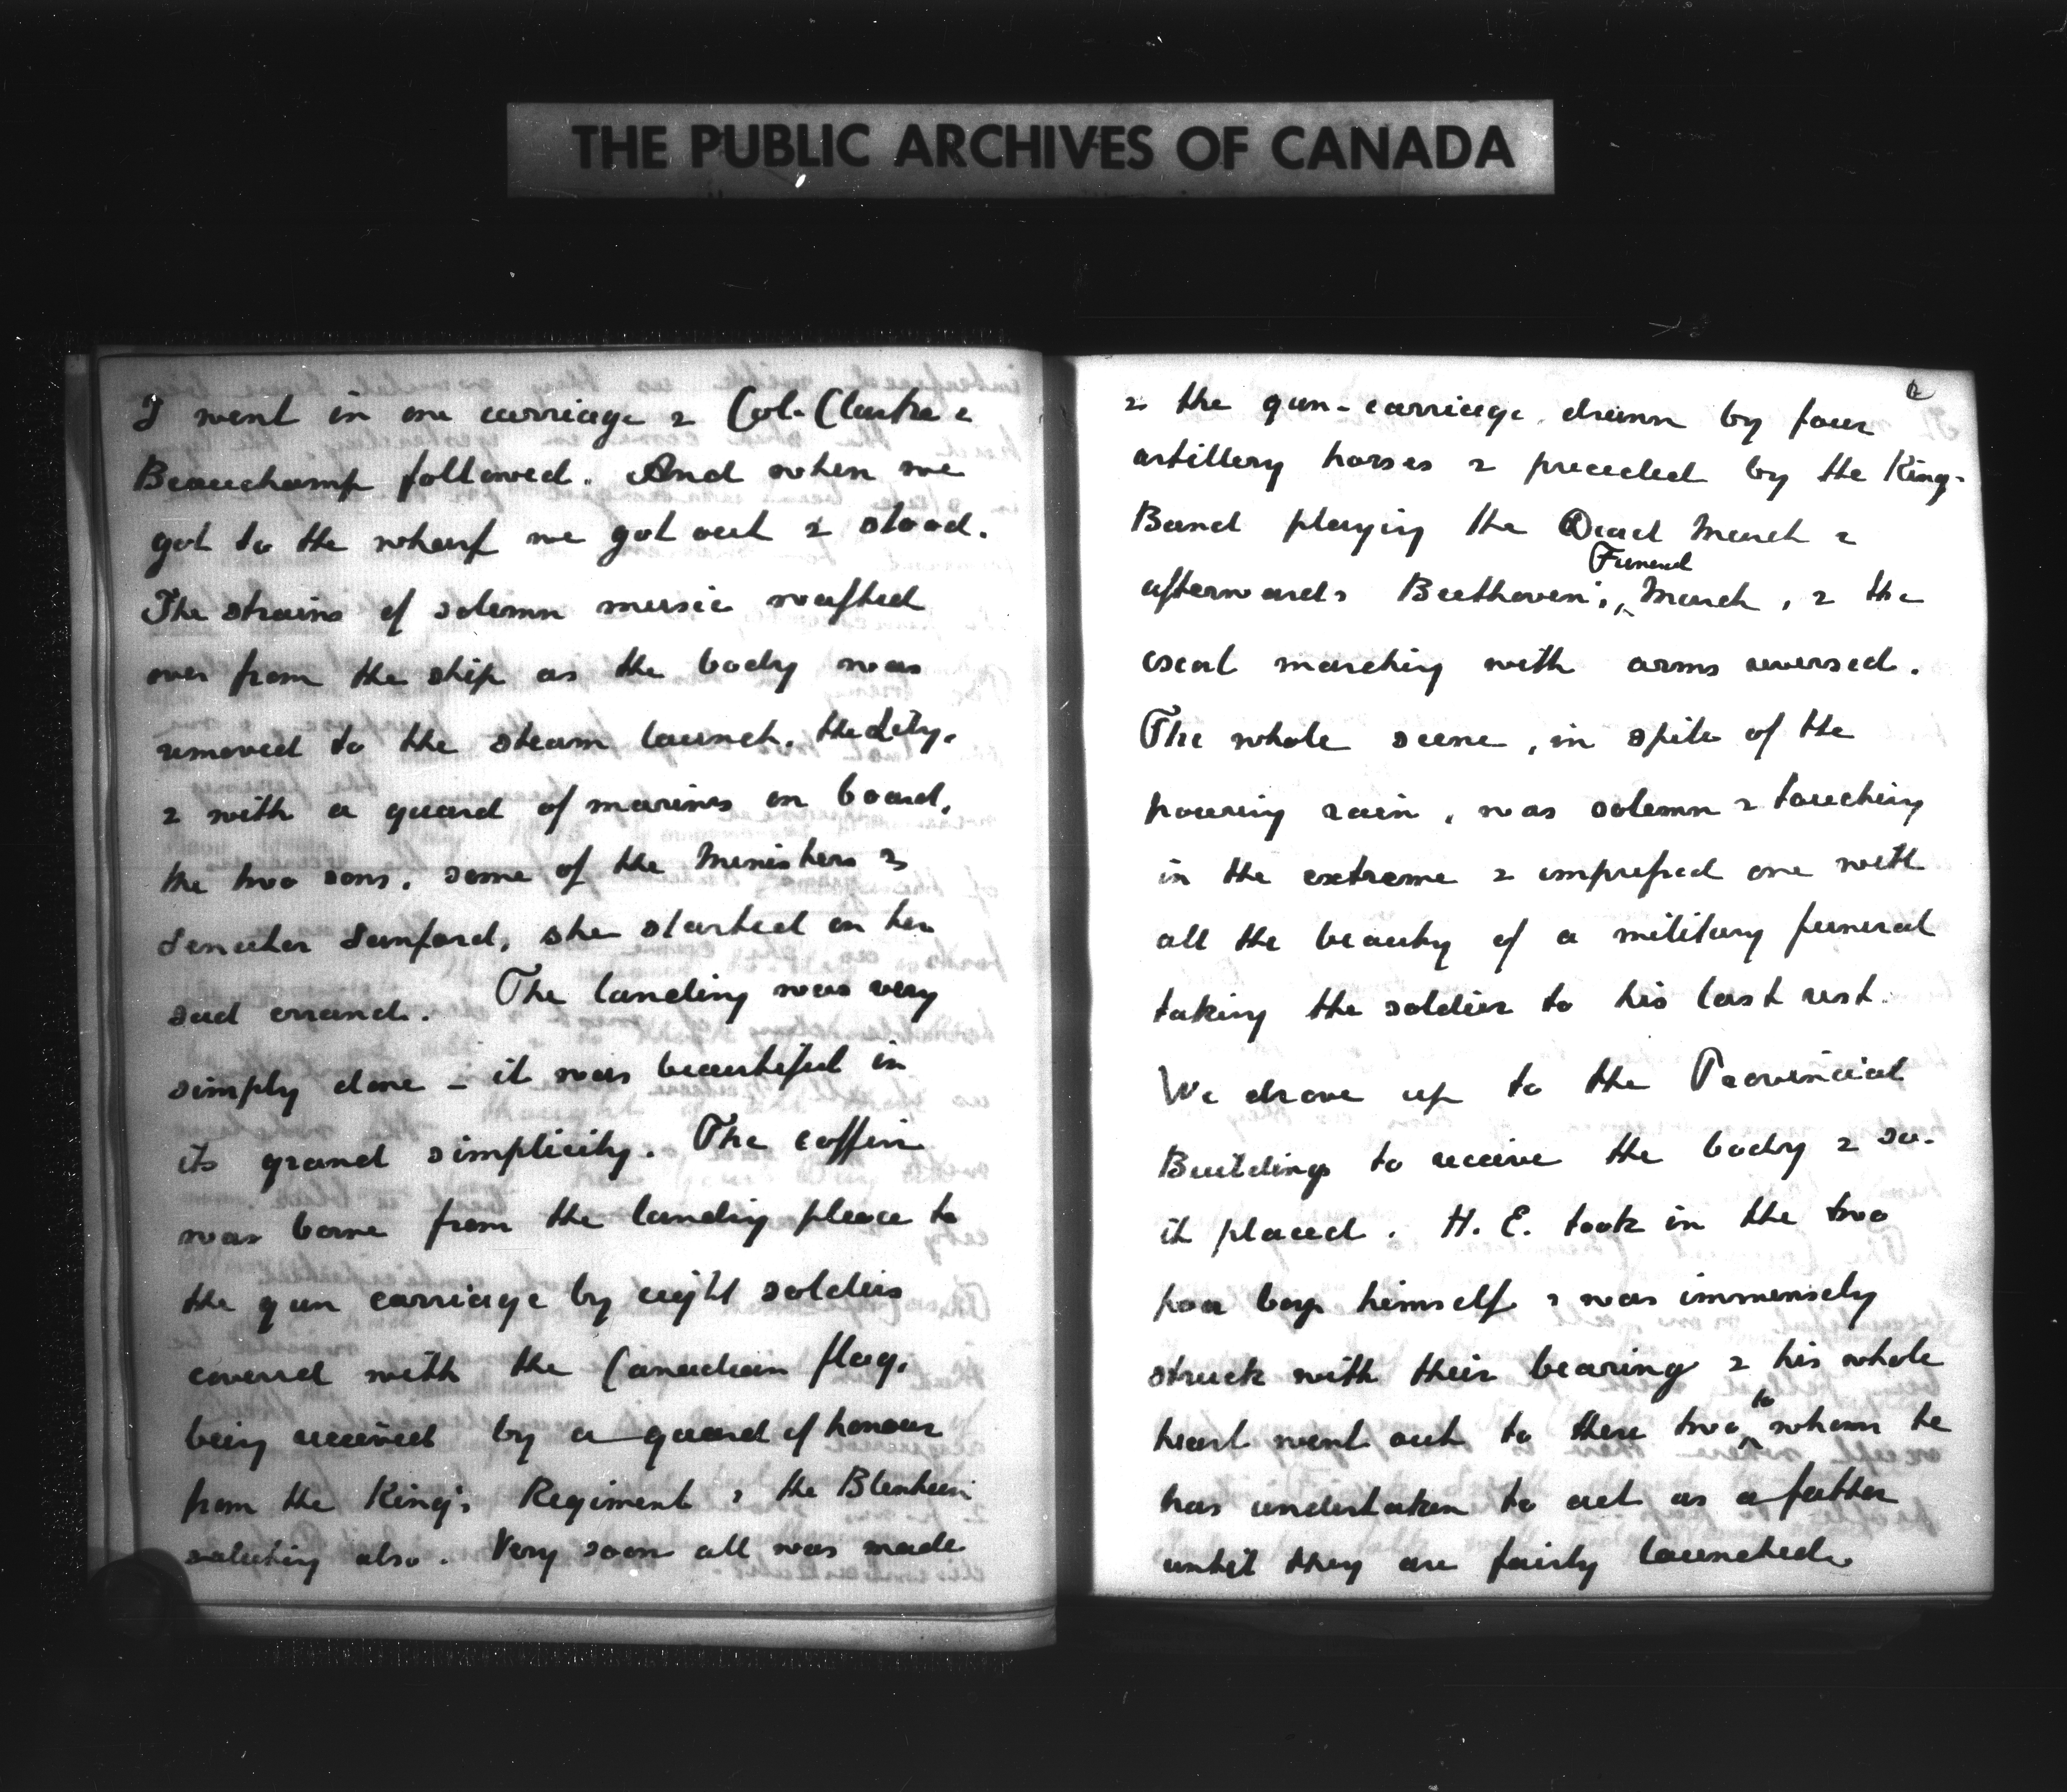 THE PUBLIC ARCHIVES OF CANADA
I went in one carriage & Col. &
Beauchamp followed. And when we
got to the wharf we got out & stood.
The strains of solemn music wafted
over from the ship as the body was
removed to the steam launch, the Lily,
& with a guard of marines on board,
the two sons, some of the Ministers &
Senator Sanford, she started on her
sad errand. The landing was very
simply done – it was beautiful in
its grand simplicity. The coffin
was borne from the landing place to
the gun carriage by eight soldiers
covered with the Canadian flag,
being received by a guard of honour
from the King's Regiment, the Blenheim
saluting also. Very soon all was made
& the gun-carriage drawn by four
artillery horses & preceded by the King's
Band playing the Dead March &
afterwards Beethoven's Funeral March, & the
escort marching with arms reversed.
The whole scene, in spite of the
pouring rain, was solemn & touching
in the extreme & impressed one with
all the beauty of a military funeral
taking the soldier to his last rest.
We drove up to the Provincial
Buildings to receive the body & see
it placed. H. E. took in the two
poor boys himself & was immensely
struck with their bearing & his whole
heart went out to these two to whom he
has undertaken to act as a father
until they are fairly launched.